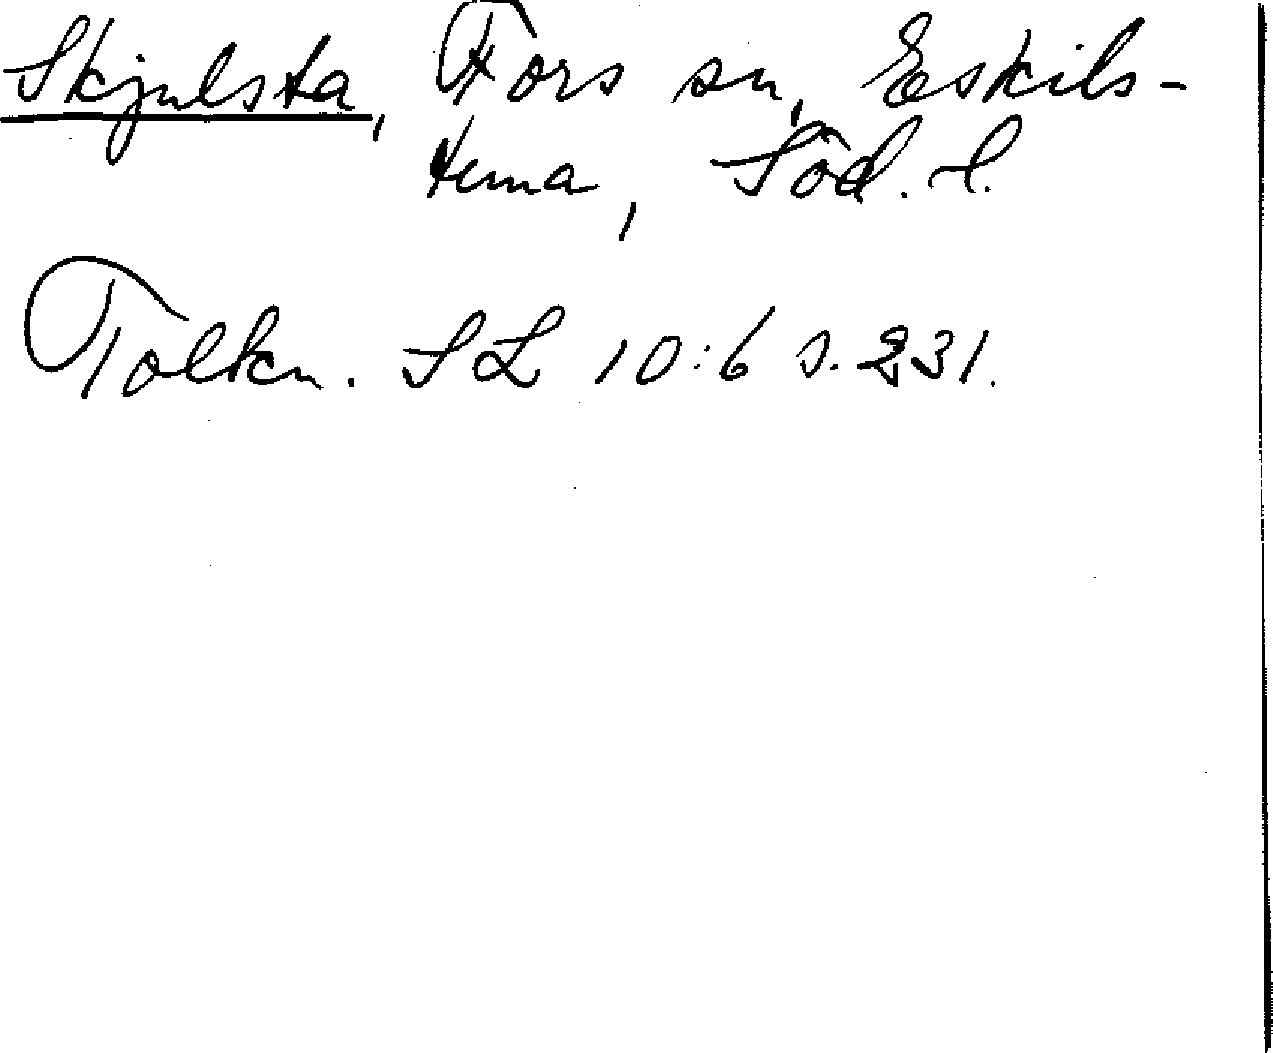 Skjulsta, Fors sn, Eskils-
tuna, Söd. l.
Tolkn. SL 10:6 s. 231.